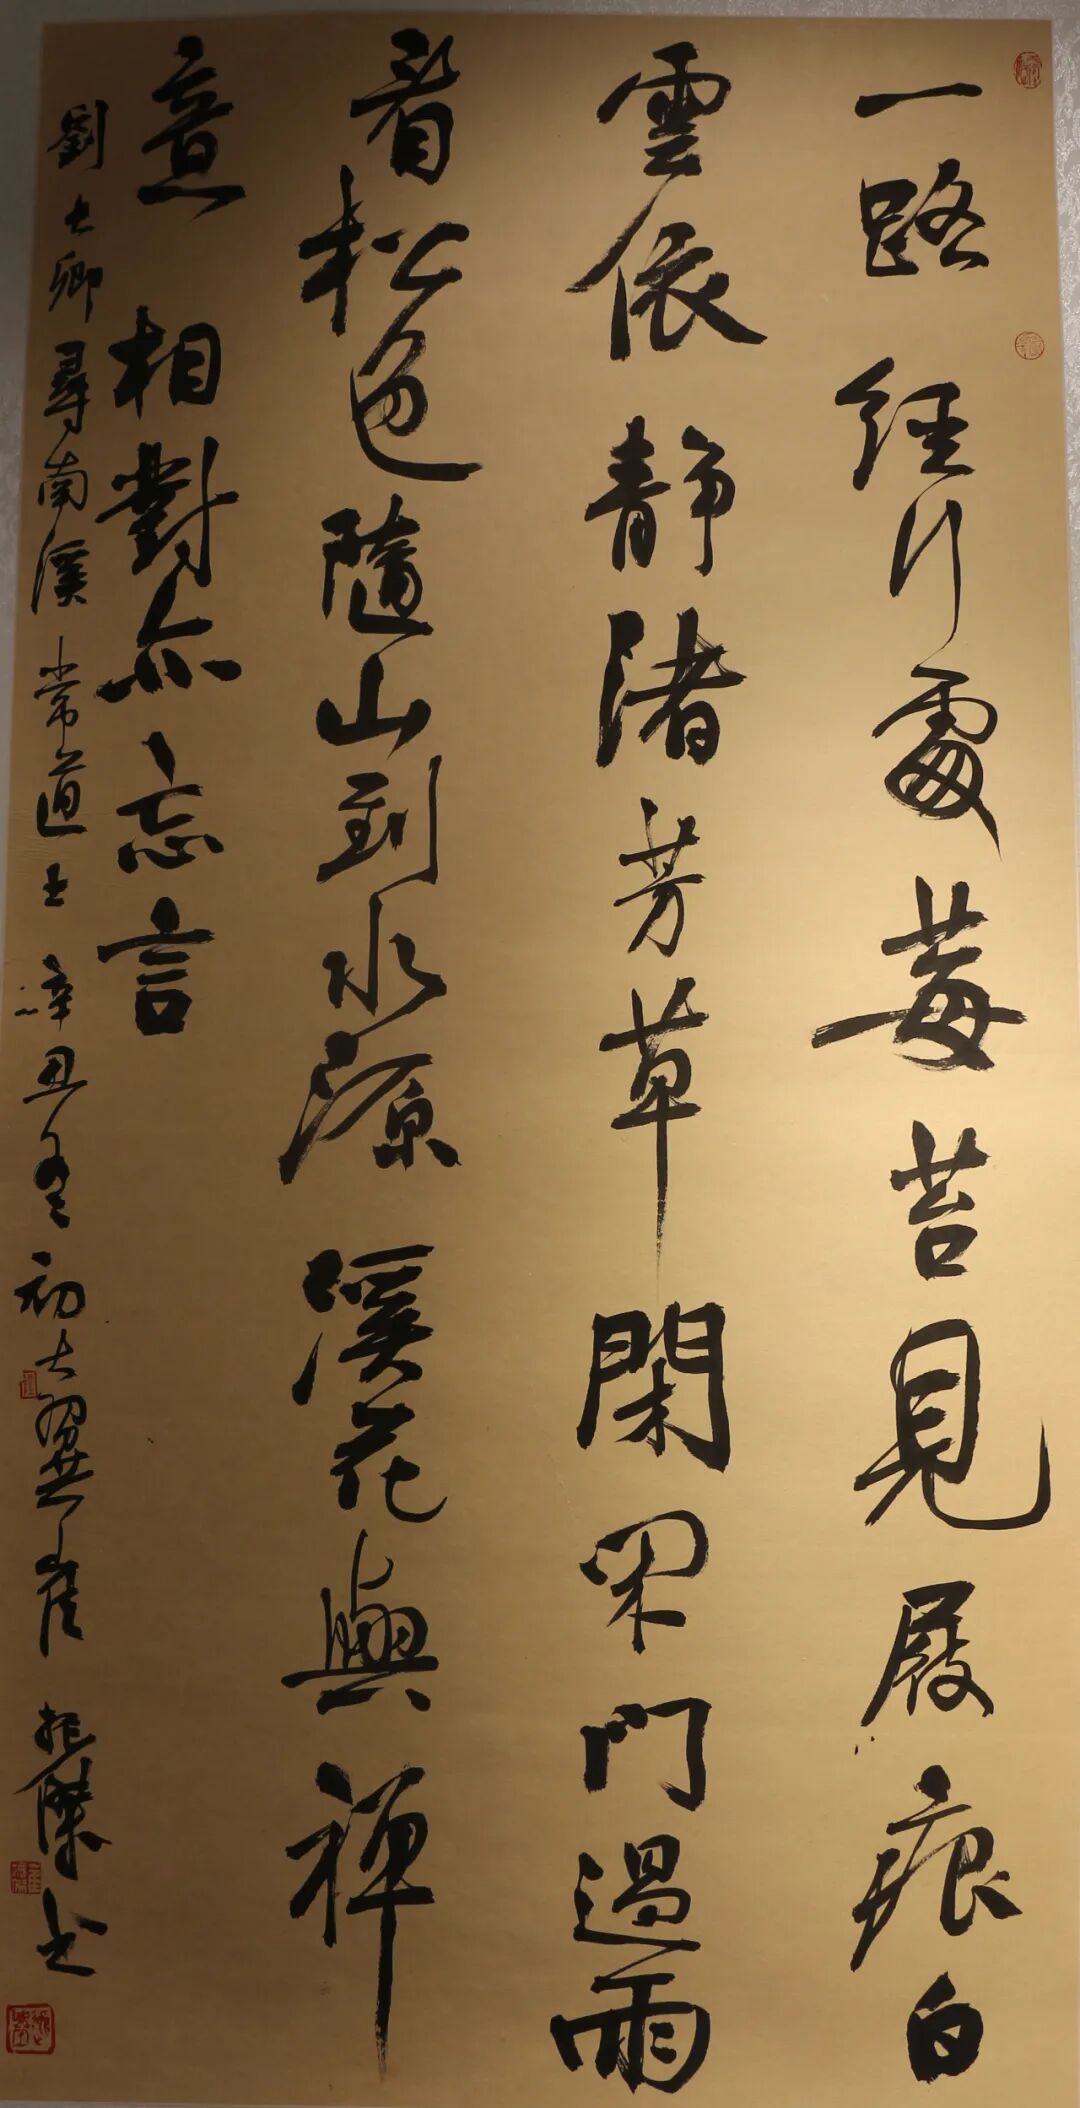 一路經行處莓苔見屐痕白
雲依靜渚芳草閑閑門過雨
看松色隨山到水源溪花與禪
意相對亦忘言
劉长卿尋南溪常道士辛丑冬初大翼崔振傑书